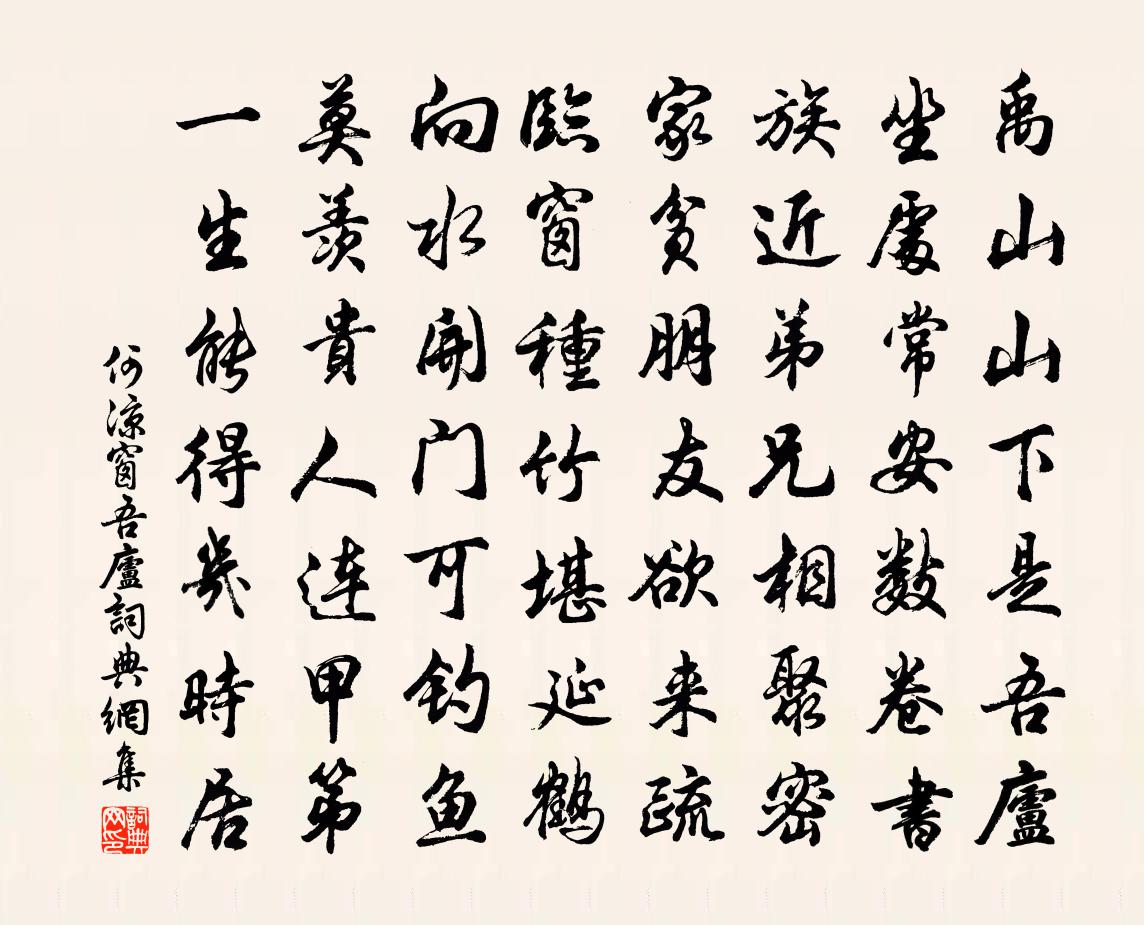 禹山山下是吾廬
坐處常安數卷書
族近弟兄相聚密
家貧朋友欲来疏
臨窗種竹堪延鶴
向水開门可钓鱼
莫羨貴人连甲第
一生能得幾時居
何涼窗吾廬詞典網集
詞典网印